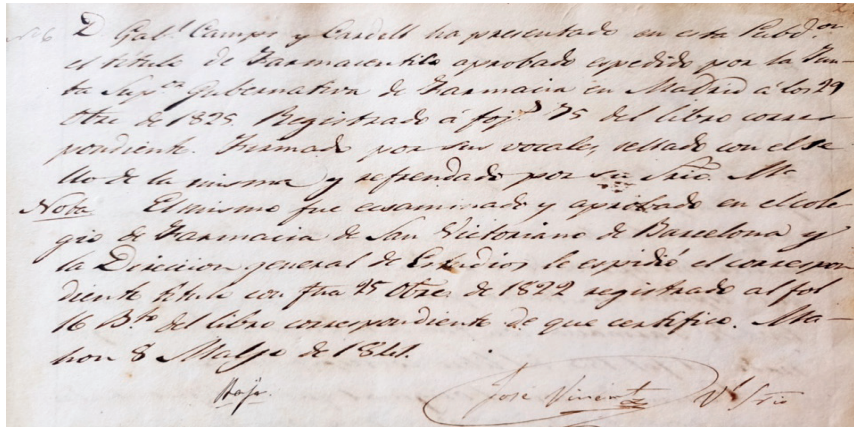 D. Gab.l Camps y Cardell ha presentado en esta Subd.on
el título de Farmaceutico aprobado espedido por la Jun-
ta Sup.or Gubernativa de Farmacia en Madrid á los 29
Otbre de 1825. Registrado á foj.s 75 del libro corres
pondiente. Firmado por sus vocales, sellado con el se-
llo de la misma y refrendado por su Srio.
Nota El mismo fue ecsaminado y aprobado en el cole-
gio de Farmacia de San Victoriano de Barcelona y
la Direccion general de Estudios le espidió el correspon
diente título con fha 25 Otbre de 1822 registrado al fol
16 B.to del libro correspondiente de que certifico. Ma-
hon 8 Mayo de 1841.
José Vincent V.l Srio